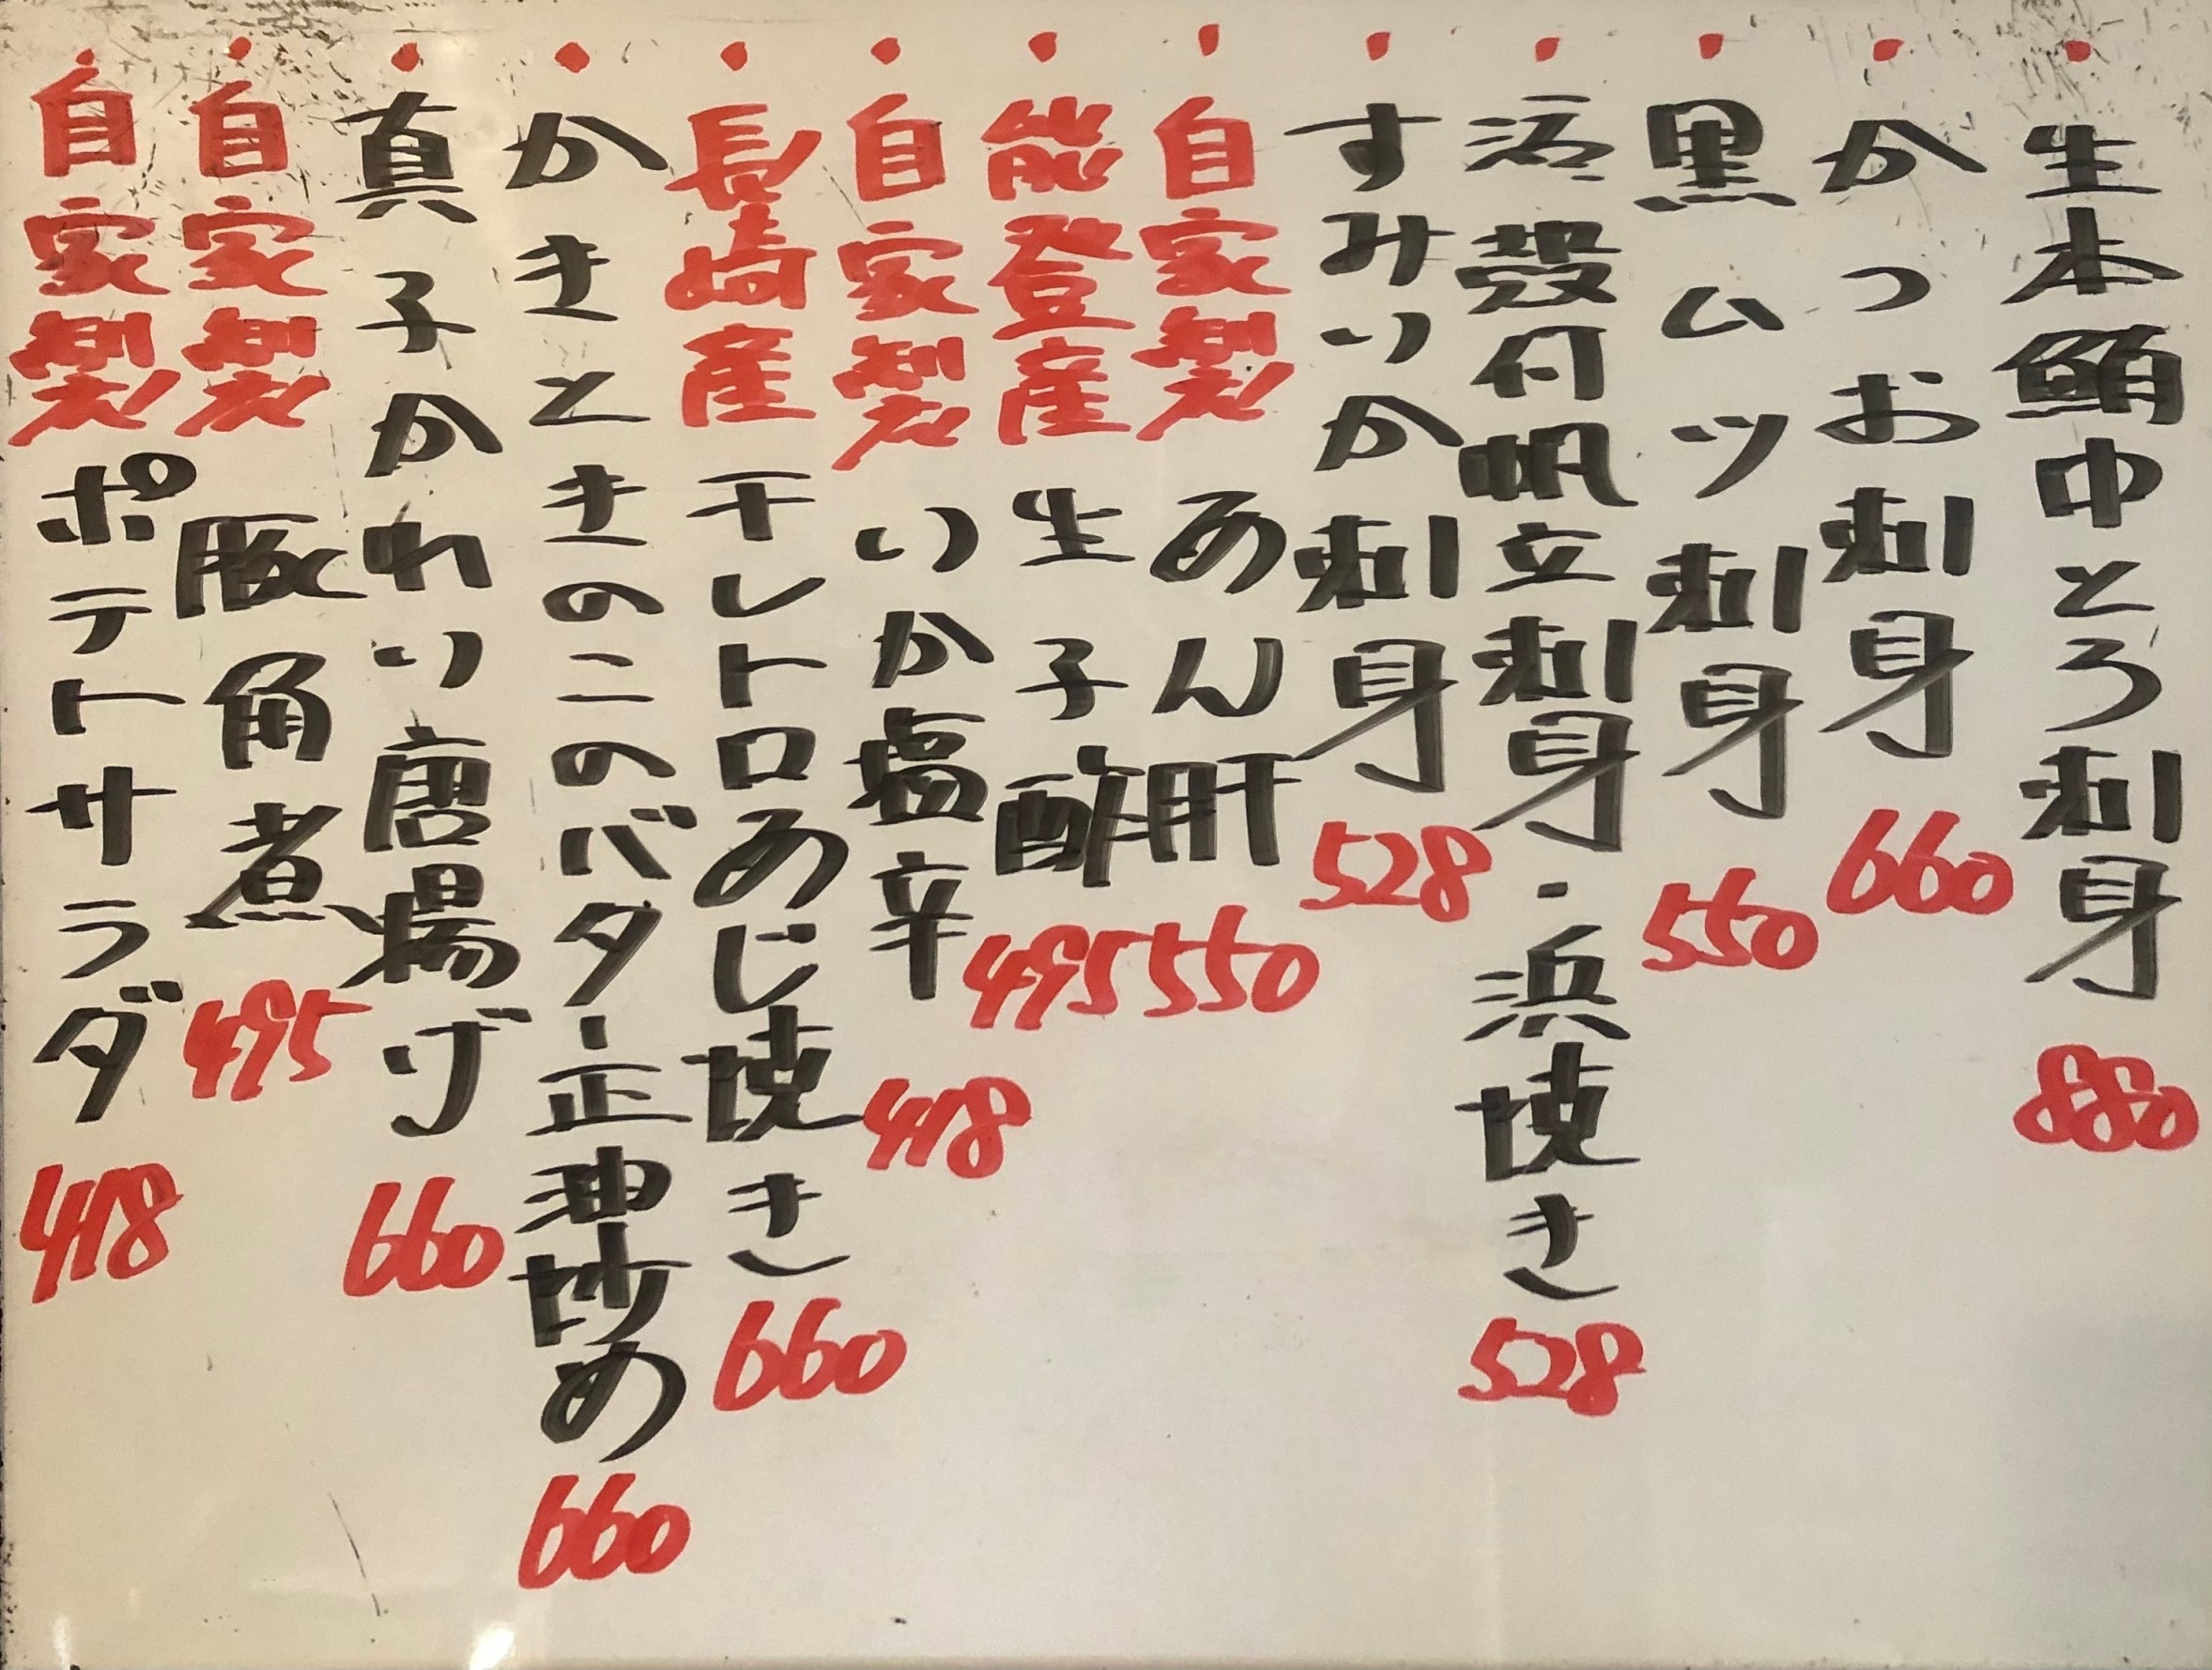 ・生本鮪中とろ刺身 880
・かつお刺身 660
・黒ムツ刺身 550
・活殻付帆立刺身・浜焼き 528
・すみいか刺身 528
・自家製あん肝 550
・能登産生子酢 495
・自家製いか塩辛 418
・長崎産干レトロあじ焼き 660
・かきときのこのバター正油炒め 660
・真子かれい唐揚げ 660
・自家製豚角煮 495
・自家製ポテトサラダ 418